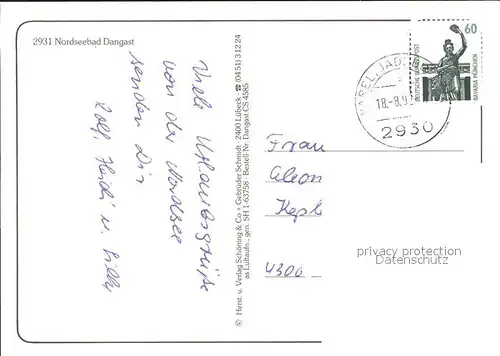 2931 Nordseebad Dangast
Viele Urlaubsgrüße
von der Nordsee
senden Dir
Rolf, Heidi u.
© Herst. u. Verlag Schöning & Co + Gebrüder Schmidt · 2400 Lübeck · ☎ (0451) 3 12 24
as Luftaufn., gen. SH 1-63758 · Bestell-Nr. Dangast CS 4585
60
DEUTSCHE BUNDESPOST
BAVARIA MÜNCHEN
VAREL, JAD
18.-8.9
2930
Frau
Kepl
4300
privacy protection
Datenschutz